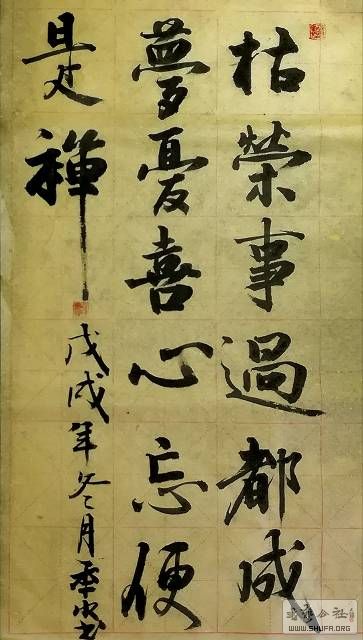 枯榮事過都成
夢憂喜心忘便
是禪
戊戌年冬月季
WWW.SHUFA.ORG